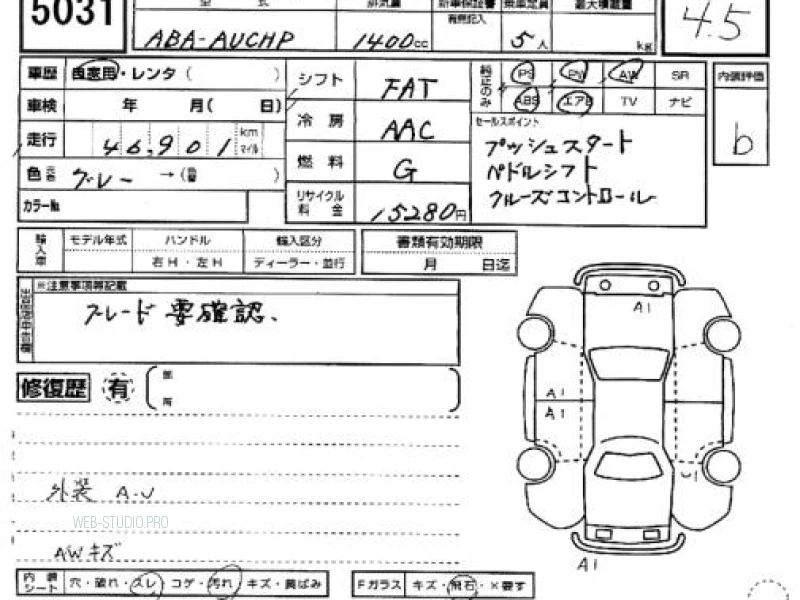 5031
型 式
排気量
新車保証書
有無記入
乗車定員
最大積載量
4.5
ABA-AUCHP
1400cc
5人
kg
車歴 自家用・レンタ( )
シフト FAT
純正のみ PS PW AW SR
ABS エアB TV ナビ
内装評価
b
車検 年 月( 日)
冷房 AAC
走行 46,901 km マイル
燃料 G
セールスポイント
プッシュスタート
パドルシフト
クルーズコントロール
色 元色 グレー →( )
カラー№
リサイクル料金 15280円
輸入車 モデル年式 ハンドル 輸入区分
右H・左H ディーラー・並行
書類有効期限
月 日迄
※注意事項等記載
グレード要確認、
修復歴 有
A1
A1
A1
外装 A・U
WEB-STUDIO.PRO
AWキズ
A1
内装シート 穴・破れ・スレ・コゲ・汚れ・キズ・黄ばみ
Fガラス キズ・飛石・×要す